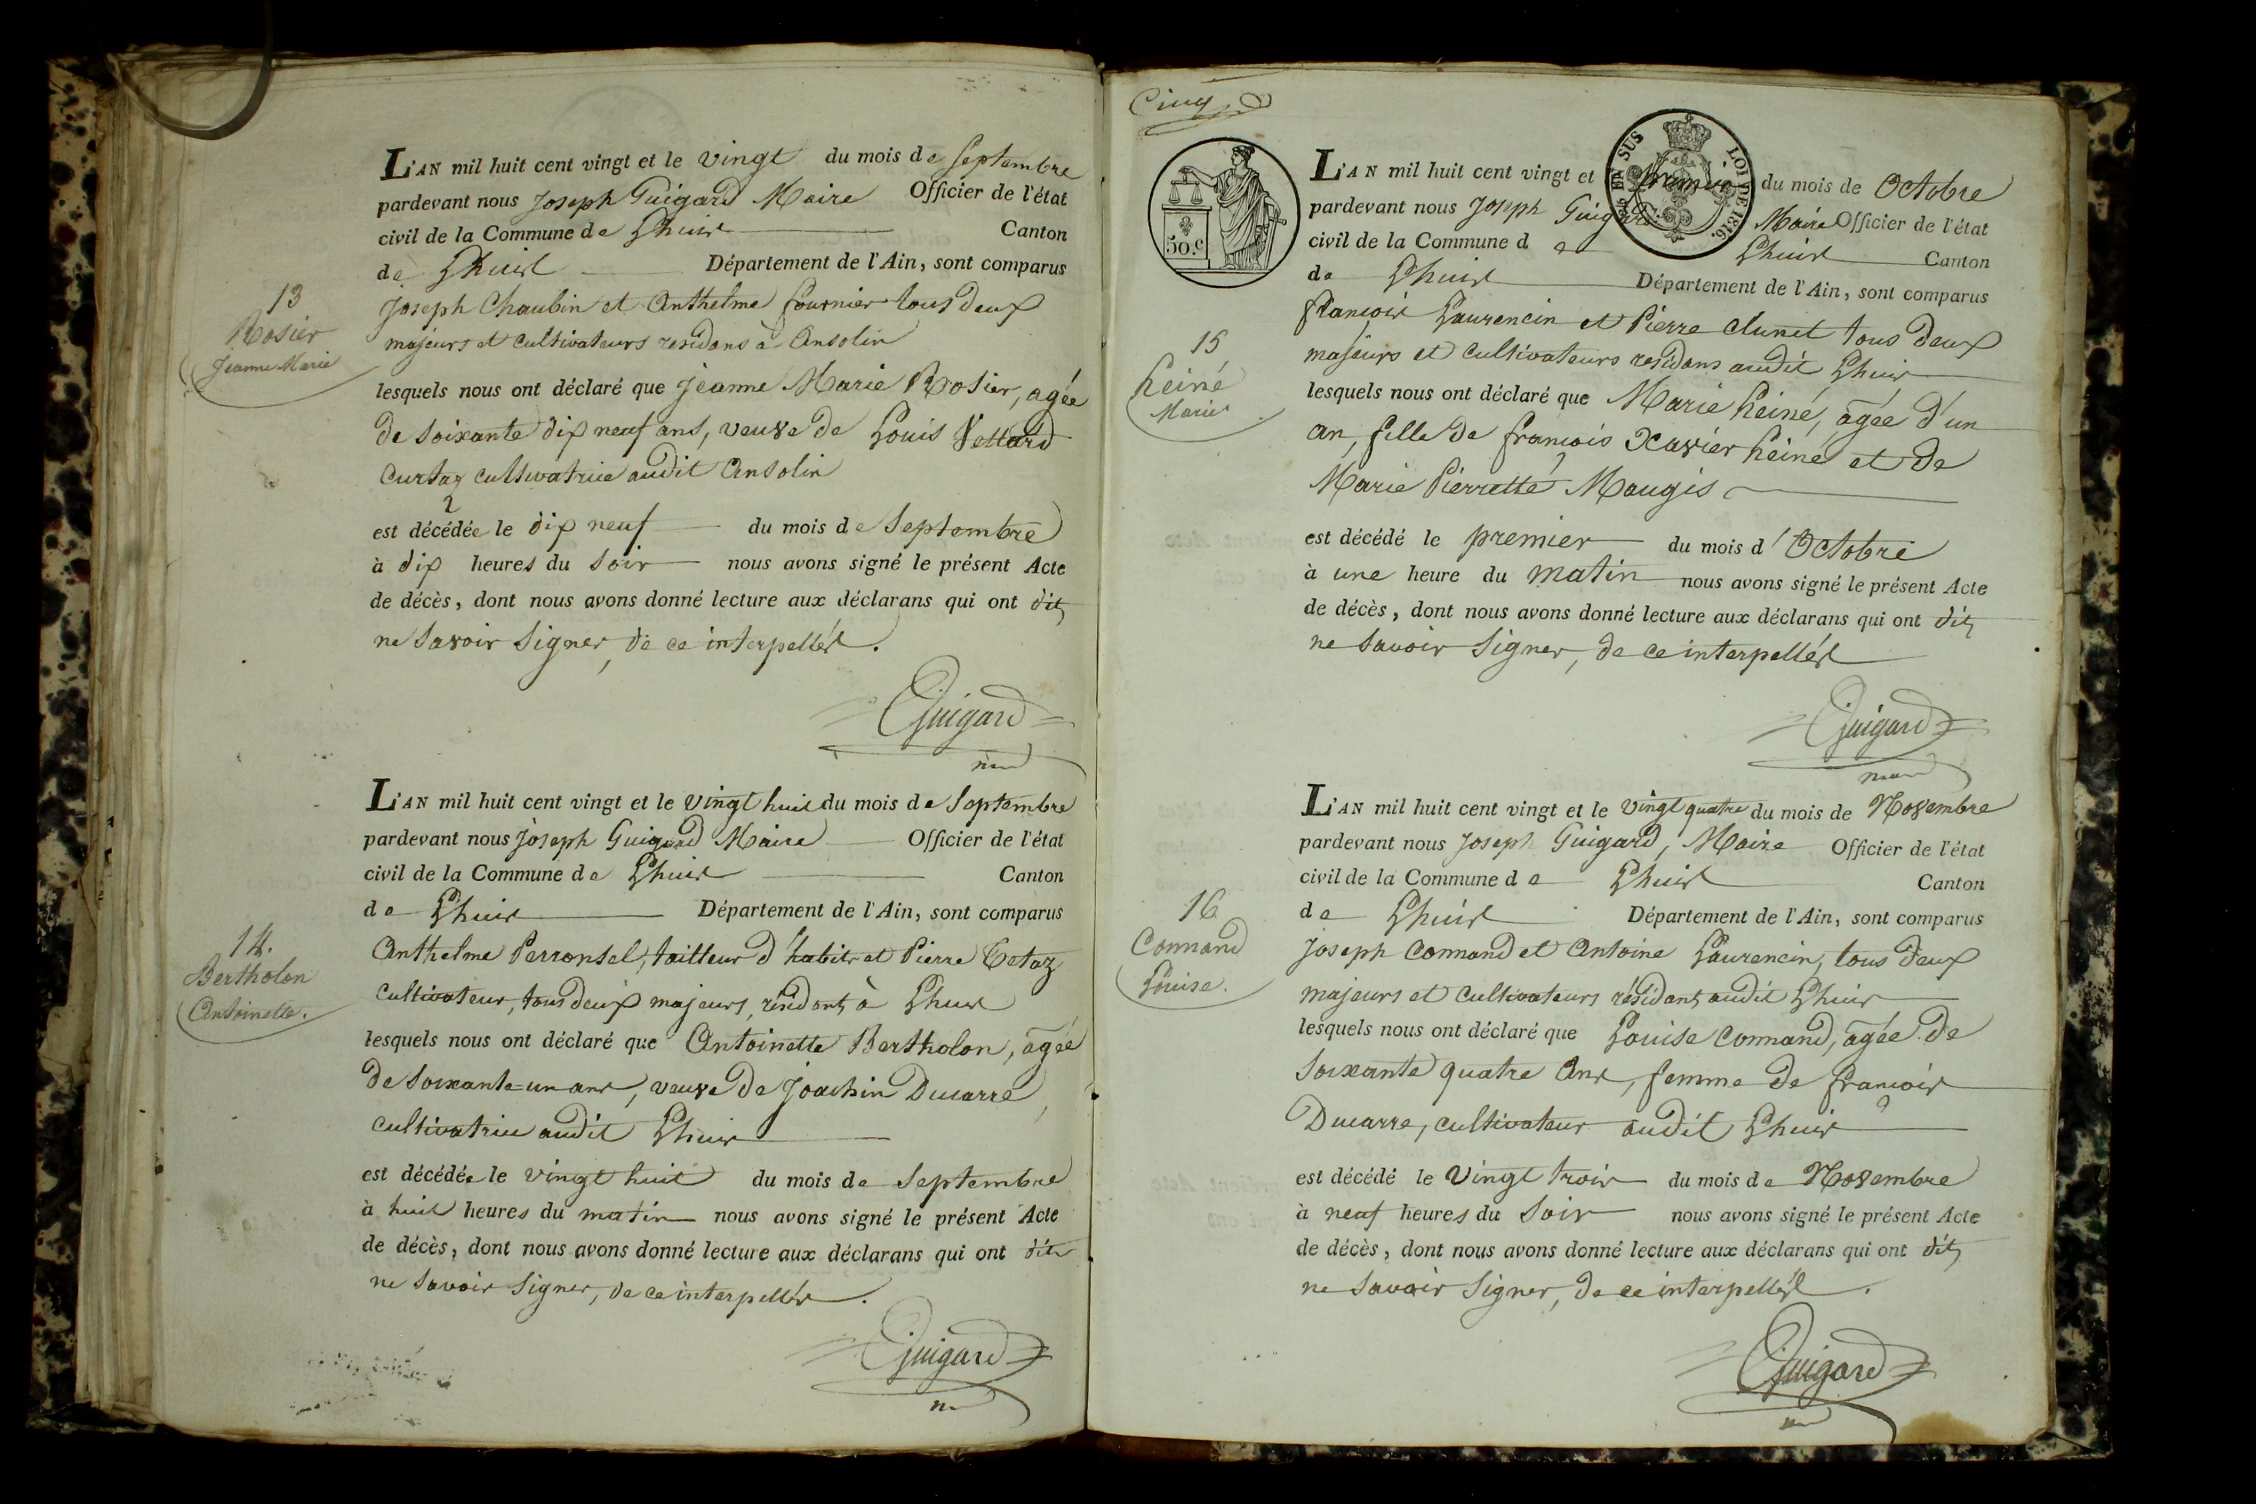 L'AN mil huit cent vingt et le vingt du mois de Septembre
pardevant nous Joseph Guigard Maire Officier de l'état
civil de la Commune de Lhuis Canton
de Lhuis Département de l'Ain, sont comparus
Joseph Chaubin et Anthelme fournier tous deux
majeurs et cultivateurs residans à Ansolin
13
Rosier
Jeanne Marie
lesquels nous ont déclaré que Jeanne Marie Rosier, agée
de soixante dix neuf ans, veuve de Louis Vettard
Curtaz cultivatrice audit Ansolin
est décédée le dix neuf du mois de Septembre
à dix heures du Soir nous avons signé le présent Acte
de décès, dont nous avons donné lecture aux déclarans qui ont dit
ne Savoir Signer, de ce interpellés.
Guigard
L'AN mil huit cent vingt et le vingt huit du mois de Septembre
pardevant nous Joseph Guigard Maire Officier de l'état
civil de la Commune de Lhuis Canton
de Lhuis Département de l'Ain, sont comparus
Anthelme Perronsel, tailleur d'habits et Pierre Tetaz
cultivateur, tous deux majeurs, résidants à Lhuis
14.
Bertholon
Antoinette.
lesquels nous ont déclaré que Antoinette Bertholon, agée
de Soixante-un ans, veuve de Joachin Ducarre,
cultivatrice audit Lhuis
est décédée le vingt huit du mois de Septembre
à huit heures du matin nous avons signé le présent Acte
de décès, dont nous avons donné lecture aux déclarans qui ont dits
ne Savoir Signer, de ce interpellés.
Guigard
Cinq
50.c
EN SUS LOI DE 1816.
L'AN mil huit cent vingt et premier du mois de Octobre
pardevant nous Joseph Guigard Maire Officier de l'état
civil de la Commune de Lhuis Canton
de Lhuis Département de l'Ain, sont comparus
francois Laurencin et Pierre Clunet tous deux
majeurs et cultivateurs residans audit Lhuis
15
heiné
Marie
lesquels nous ont déclaré que Marie heiné, agée d'un
an, fille de francois Xavier heiné et de
Marie Pierrette Maugis
est décédé le premier du mois d'Octobre
à une heure du matin nous avons signé le présent Acte
de décès, dont nous avons donné lecture aux déclarans qui ont dit
ne Savoir Signer, de ce interpellés
Guigard
L'AN mil huit cent vingt et le vingt quatre du mois de Novembre
pardevant nous Joseph Guigard, Maire Officier de l'état
civil de la Commune de Lhuis Canton
de Lhuis Département de l'Ain, sont comparus
Joseph Connand et Antoine Laurencin, tous deux
majeurs et cultivateurs résidants audit Lhuis
16
Connand
Louise.
lesquels nous ont déclaré que Louise Connand, agée de
Soixante quatre Ans, femme de francois
Ducarre, cultivateur audit Lhuis
est décédé le vingt trois du mois de Novembre
à neuf heures du Soir nous avons signé le présent Acte
de décès, dont nous avons donné lecture aux déclarans qui ont dit
ne Savoir Signer, de ce interpellés.
Guigard